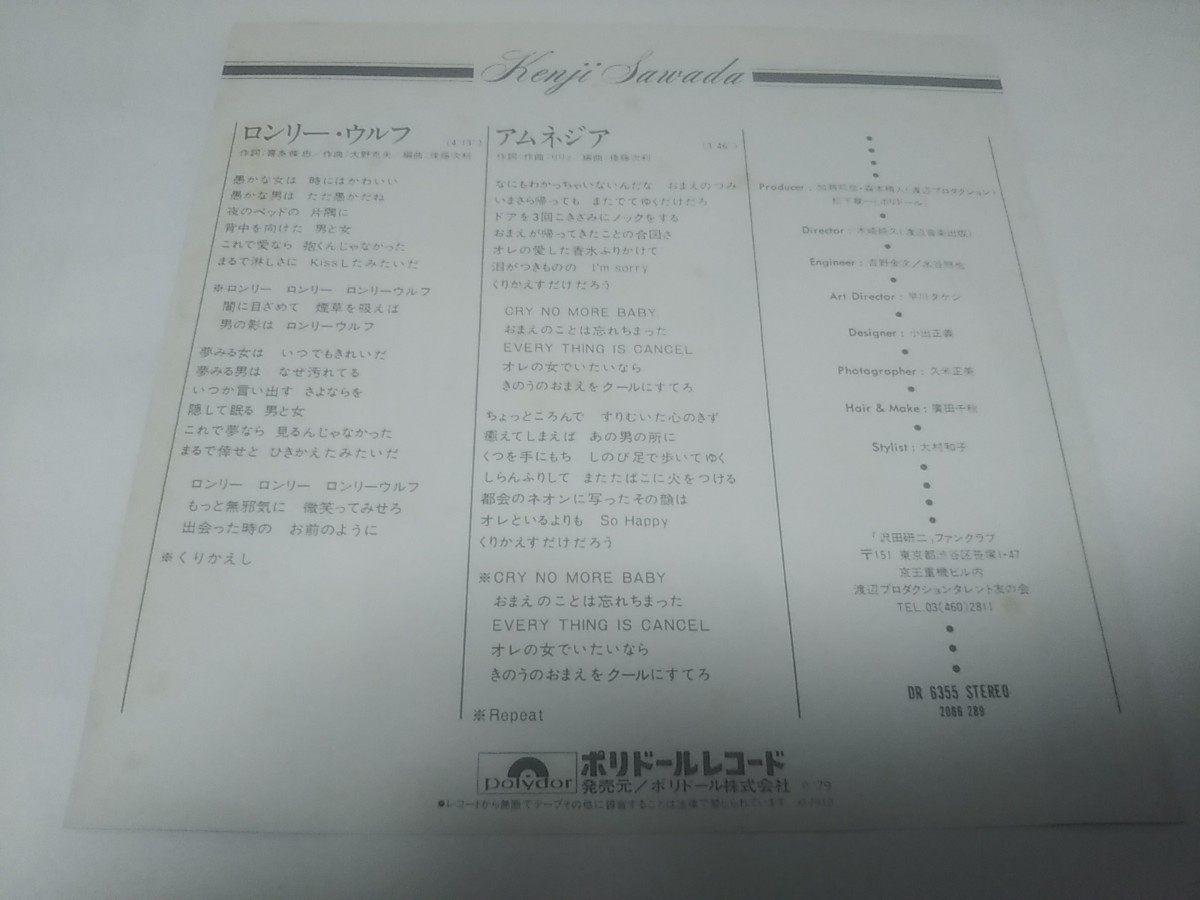 Kenji Sawada
ロンリー・ウルフ
作詞:喜多條忠/作曲:大野克夫 編曲:後藤次利
愚かな女は 時にはかわいい
愚かな男は ただ愚かだね
夜のベッドの 片隅に
背中を向けた 男と女
これで愛なら 捨くんじゃなかった
まるで淋しさに Kissしたみたいだ
※ロンリー ロンリー ロンリーウルフ
闇に目ざめて 煙草を吸えば
男の影は ロンリーウルフ
夢みる女は いつでもきれいだ
夢みる男は なぜ汚れてる
いつか言い出す さよならを
隠して眠る 男と女
これで夢なら 見るんじゃなかった
まるで倖せと ひきかえたみたいだ
ロンリー ロンリー ロンリーウルフ
もっと無邪気に 微笑ってみせろ
出会った時の お前のように
※くりかえし
アムネジア
(3:46)
作詞・作曲:リリィ 編曲:後藤次利
なにもわかっちゃいないんだな おまえのつみ
いまさら帰っても またでてゆくだけだろ
ドアを3回こきざみにノックをする
おまえが帰ってきたことの合図さ
オレの愛した香水ふりかけて
泪がつきものの I'm sorry
くりかえすだけだろう
CRY NO MORE BABY
おまえのことは忘れちまった
EVERY THING IS CANCEL
オレの女でいたいなら
きのうのおまえをクールにすてろ
ちょっところんで すりむいた心のきず
癒えてしまえば あの男の所に
くつを手にもち しのび足で歩いてゆく
しらんふりして またたばこに火をつける
都会のネオンに写ったその顔は
オレといるよりも So Happy
くりかえすだけだろう
※CRY NO MORE BABY
おまえのことは忘れちまった
EVERY THING IS CANCEL
オレの女でいたいなら
きのうのおまえをクールにすてろ
※Repeat
Producer : 加瀬邦彦・森本精人(渡辺プロダクション)
松下龍一(ポリドール)
Director : 木崎賢久(渡辺音楽出版)
Engineer : 吉野金次/
Art Director : 早川タケジ
Designer : 小出正義
Photographer : 久米正美
Hair & Make : 廣田千秋
Stylist : 大村和子
「沢田研二」ファンクラブ
〒151 東京都渋谷区笹塚1-47
京王重機ビル内
渡辺プロダクションタレント友の会
TEL.03(460)2811
DR 6355 STEREO
2086 289
polydor ポリドールレコード
発売元/ポリドール株式会社 Ⓟ '79
●レコードから無断でテープその他に録音することは法律で禁じられています。